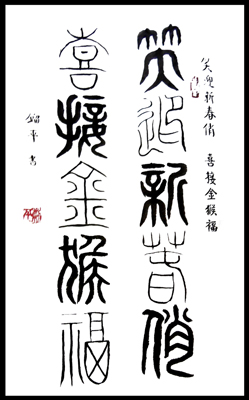 笑迎新春俏 喜接金猴福
笑迎新春俏
喜接金猴福
平書